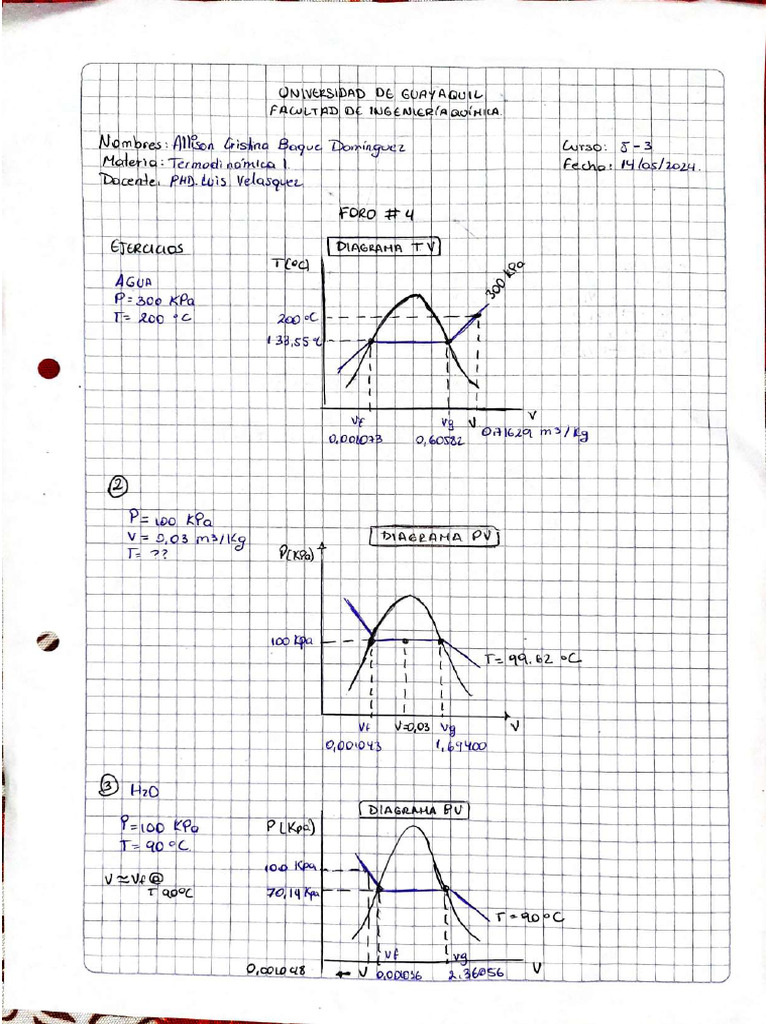 UNIVERSIDAD DE GUAYAQUIL
FACULTAD DE INGENIERÍA QUÍMICA.
Nombres: Allison Cristina Baque Domínguez
Curso: 5-3
Materia: Termodinámica 1.
Fecha: 14/05/2024.
Docente: PHD. Luis Velasquez
FORO # 4
EJERCICIOS
DIAGRAMA T V
AGUA
P= 300 KPa
T= 200 °C
T(°C)
300 KPa
200°C
133,55°C
V
Vf
Vg
V
0,001073
0,60582
0,71629 m3/Kg
2
P= 100 KPa
V= 0,03 m3/Kg
T= ??
DIAGRAMA PV
P(KPa)
100 KPa
T= 99.62 °C
Vf
V=0,03
Vg
V
0,001043
1,69400
3 H2O
P=100 KPa
T= 90°C.
V≈Vf@
T 90°C
DIAGRAMA PV
P(Kpa)
100 KPa
70,14 Kpa
T=90°C
Vf
Vg
0,001048
← V
0,001036
2.36056
V